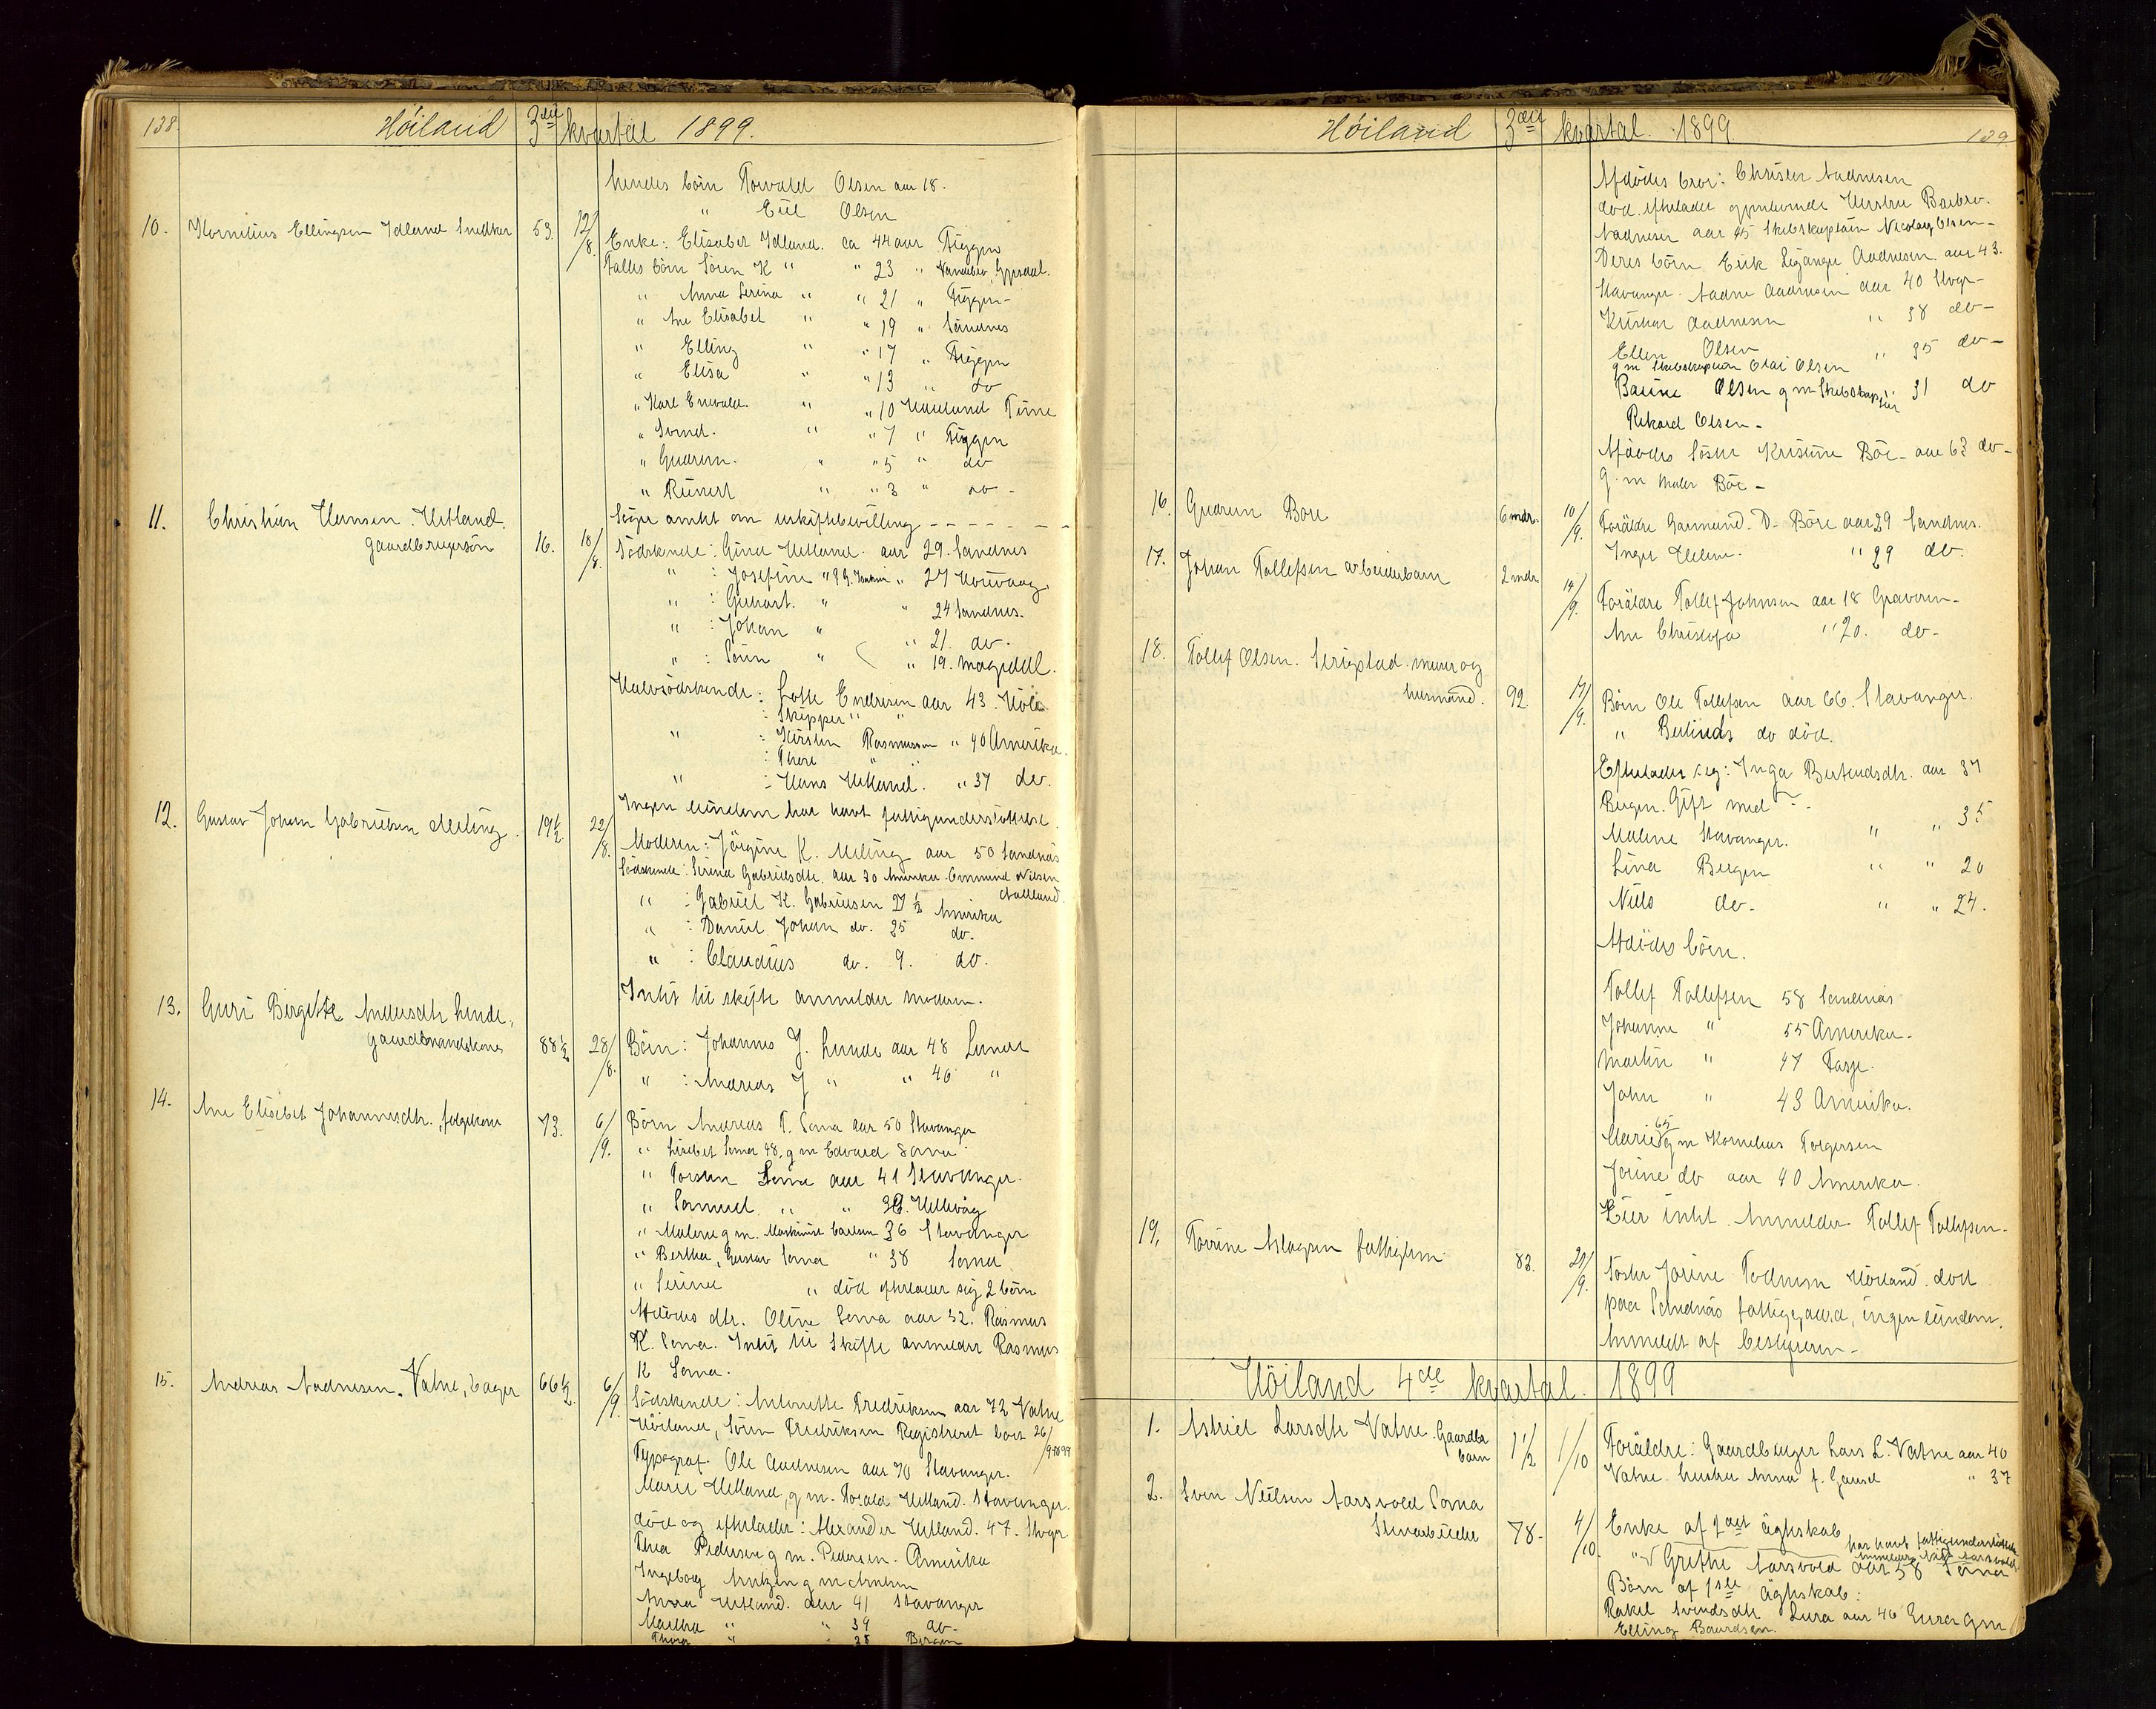 138 Höiland 3die kvartal 1899.
hendes börn Torvald Olsen aar 18.
" Eiel Olsen
10. Kornelius Ellingsen Idland Snedker 53. 12/8. Enke: Elisabet Idland. ca 44 aar Figgen
Fælles börn Sören K " " 23 "
" Anna Serina " " 21 " Figgen
" Ane Elisabet " " 19 " Sandnes
" Elling " " 17 " Figgen
" Elisa " " 13 " do
" Karl Enevald. " " 10 Höiland Time
" Svend. " " 7 " Figgen
" Gudrun. " " 5 " do
" Reinert " " 3 " do -
Söger amtet om uskiftebevilling - - - - - -
11. Christian Hansen. Hetland.
gaardbrugersön 16. 18/8. Södskende: Gina Hetland. aar 29. Sandnes
" : Josefine " " 27
" : Gerhart. " " 24 Sandnes.
" : Johan " " 21. do.
" : Sören " " 19.
Halvsödskende: Lotte Endresen aar 43. Höle
: Skipper " "
" : Kirsten Rasmussen " 40 Amerika.
: Thore " "
" : Hans Hetland. " 37 do.
Ingen eiendom har havt fattigunderstöttelse.
12. Gustav Johan Gabrielsen Meling. 19 1/2 22/8. Moderen: Jörgine K. Meling aar 50 Sandnæs
Södskende: Serina Gabrielsdtr. aar 30 Amerika Emmund Nilsen
" : Gabriel K. Gabrielsen 27 1/2 Amerika
" : Daniel Johan do. 25 do.
" : Claudius do. 9. do.
Intet til skifte anmelder moderen.
13. Guri Birgitte Andersdtr Lunde,
gaardmandskone 88 1/2 28/8. Börn: Johannes J. Lunde aar 48 Lunde
" : Andreas J " " 46 "
14. Ane Elisabet Johannesdtr. folgekone 73. 6/9. Börn Andreas T. Soma aar 50 Stavanger
" Lisebet Soma 48, g m Edvard Soma
" Torsten Soma aar 41 Stavanger.
" Samuel " " 39. Hillevåg
" Malene g m. Carlsen 36 Stavanger
" Bertha, Gustav Soma " 38 Soma
" Serina " död efterlader sig 2 börn
Aflödes dtr. Oline Soma aar 32. Rasmus
K. Soma. Intet til Skifte anmelder Rasmus
K Soma.
15. Andreas Aadnesen. Vatne, bager 66 1/2. 6/9. Södskende: Antonette Fredriksen aar 72 Vatne
Höiland, Sören Fredriksen Registreret boet 26/9 1899
Typograf. Ole Aadnesen aar 70 Stavanger.
Marie Hetland, g m. Torald Hetland. Stavanger.
död og efterlader: Alexander Hetland. 47. Stvgr
Thea Pedersen g m. Pedersen. Amerika
Ingeborg
Anna Hetland. aar 41 Stavanger
Martha " " 39 do-
Thora " " 38 Bergen
Höiland 3die kvartal. 1899. 139
Afdödes bror: Christen Aadnesen
död. efterladt gjenlevende Hustru Barbro.
Aadnesen aar Skibskaptein Nicolay Olsen-
Deres börn Erik Aadnesen aar 43.
Stavanger. Aadne Aadnesen aar 40 Stvgr-
Kristian Aadnesen " 38 do-
Ellen Olsen " 35 do-
g m Skibskaptein Olai Olsen
Olsen g m Skibskaptein " 31 do
Rikard Olsen-
Afdödes Söster Kristine Böe- aar 63 do-
g. m maler Böe-
16. Gudrun Bore 6 mdr. 10/9. Forældre Garmund. D. Böre aar 29 Sandnes.
Inger Helene. " 29 do.
17. Johan Tollefsen arbeiderbarn 2 mdr 14/9. Forældre Tollef Johnsen aar 18 Graveren-
Ane Christofa " 20. do-
18. Tollef Olsen. Serigstad. murer og
husmand. 92 17/9. Börn Ole Tollefsen aar 66. Stavanger.
" do död.
Efterlader sig: Inga Bertinusdtr. aar 37
Bergen. Gift med -
Malene Stavanger. " " 35
Lina Bergen " " 20
Niels do- " " 24.
Afdödes börn.
Tollef Tollefsen 58 Sandnæs
Johanne " 55 Amerika.
Martin " 47
John " 43 Amerika.
Marie 65 g m Kornelius Torgersen
Jorine do aar 40 Amerika.
Eier intet. Anmelder Tollef Tollefsen-
19. Torrine Aslagsen fattiglem 83. 29/9. Söster Jorine Höiland. död
paa Sandnæs fattiggaard, ingen eiendom.
Anmeldt af bestyreren-
Höiland 4de kvartal. 1899
1. Astrid Larsdtr Vatne. Gaardbr barn 1 1/2 1/10 Forældre: Gaardbruger Lars L. Vatne aar 40
Vatne hustru Anna f. Gausel " 37
2. Sven Nilsen Aarsvold Soma
78- 4/10. Enke af 2det ægteskab har havt fattigunderstöttelse
anmelder Nils Aarsvold
" Grethe Aarsvold aar 58 Soma
Börn af 1ste ægteskab:
Rakel Svendsdtr Lura aar 46 Lura g m
Elling Baardsen.